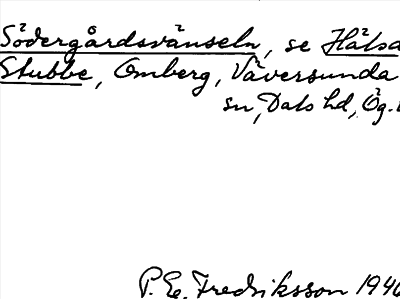 Södergårdsvänseln, se Hälsa
Stubbe, Omberg, Väversunda
sn, Dals hd, Ög.
P. E. Fredriksson 1940